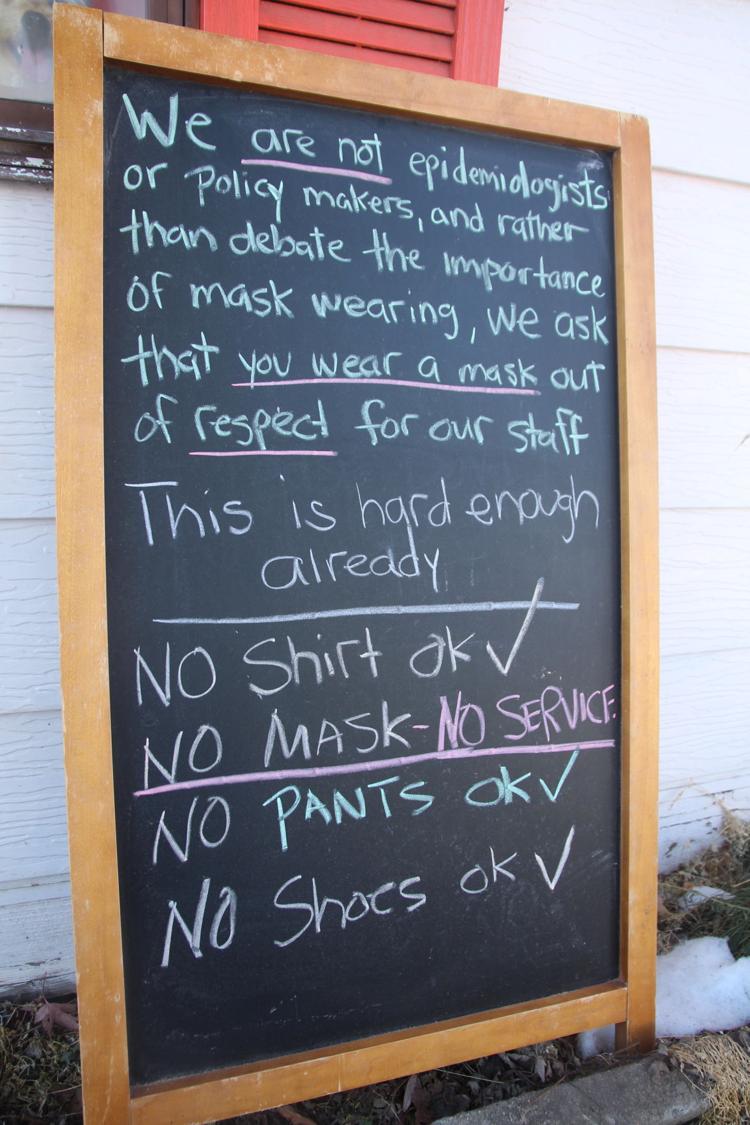 We are not epidemiologists
or Policy makers, and rather
than debate the importance
of mask wearing, we ask
that you wear a mask out
of respect for our staff
This is hard enough
already
NO Shirt ok ✓
NO MASK-NO SERVICE.
NO PANTS OK ✓
NO Shoes ok ✓